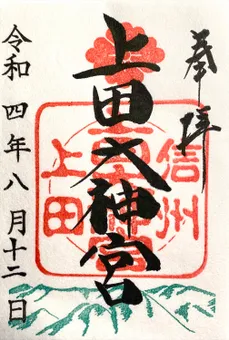 奉拝
信州
上田大神宮
上田
令和四年八月十二日